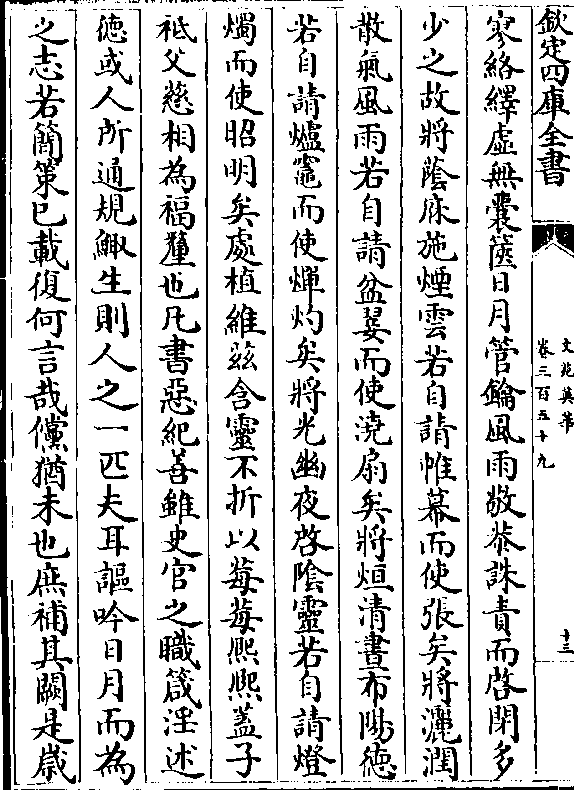 欽定四庫全書
文苑英華
卷三百五十九
十三
寥絡繹虚無囊篋日月管鑰風雨敬恭誅責而啓閉多
少之故將蔭庥施煙雲若自請帷幕而使張矣將灑潤
散氣風雨若自請盆翣而使澆扇矣將烜清晝布陽徳
若自請爐竈而使煇灼矣將光幽夜啓陰靈若自請燈
燭而使昭明矣處植維兹含靈不折以莓莓熈熈蓋子
祗父慈相為福釐也凡書惡紀善雖史官之職箴淫述
徳或人所通規鯫生則人之一匹夫耳謳吟日月而為
之志若簡策已載復何言哉儻猶未也庶補其闕是嵗